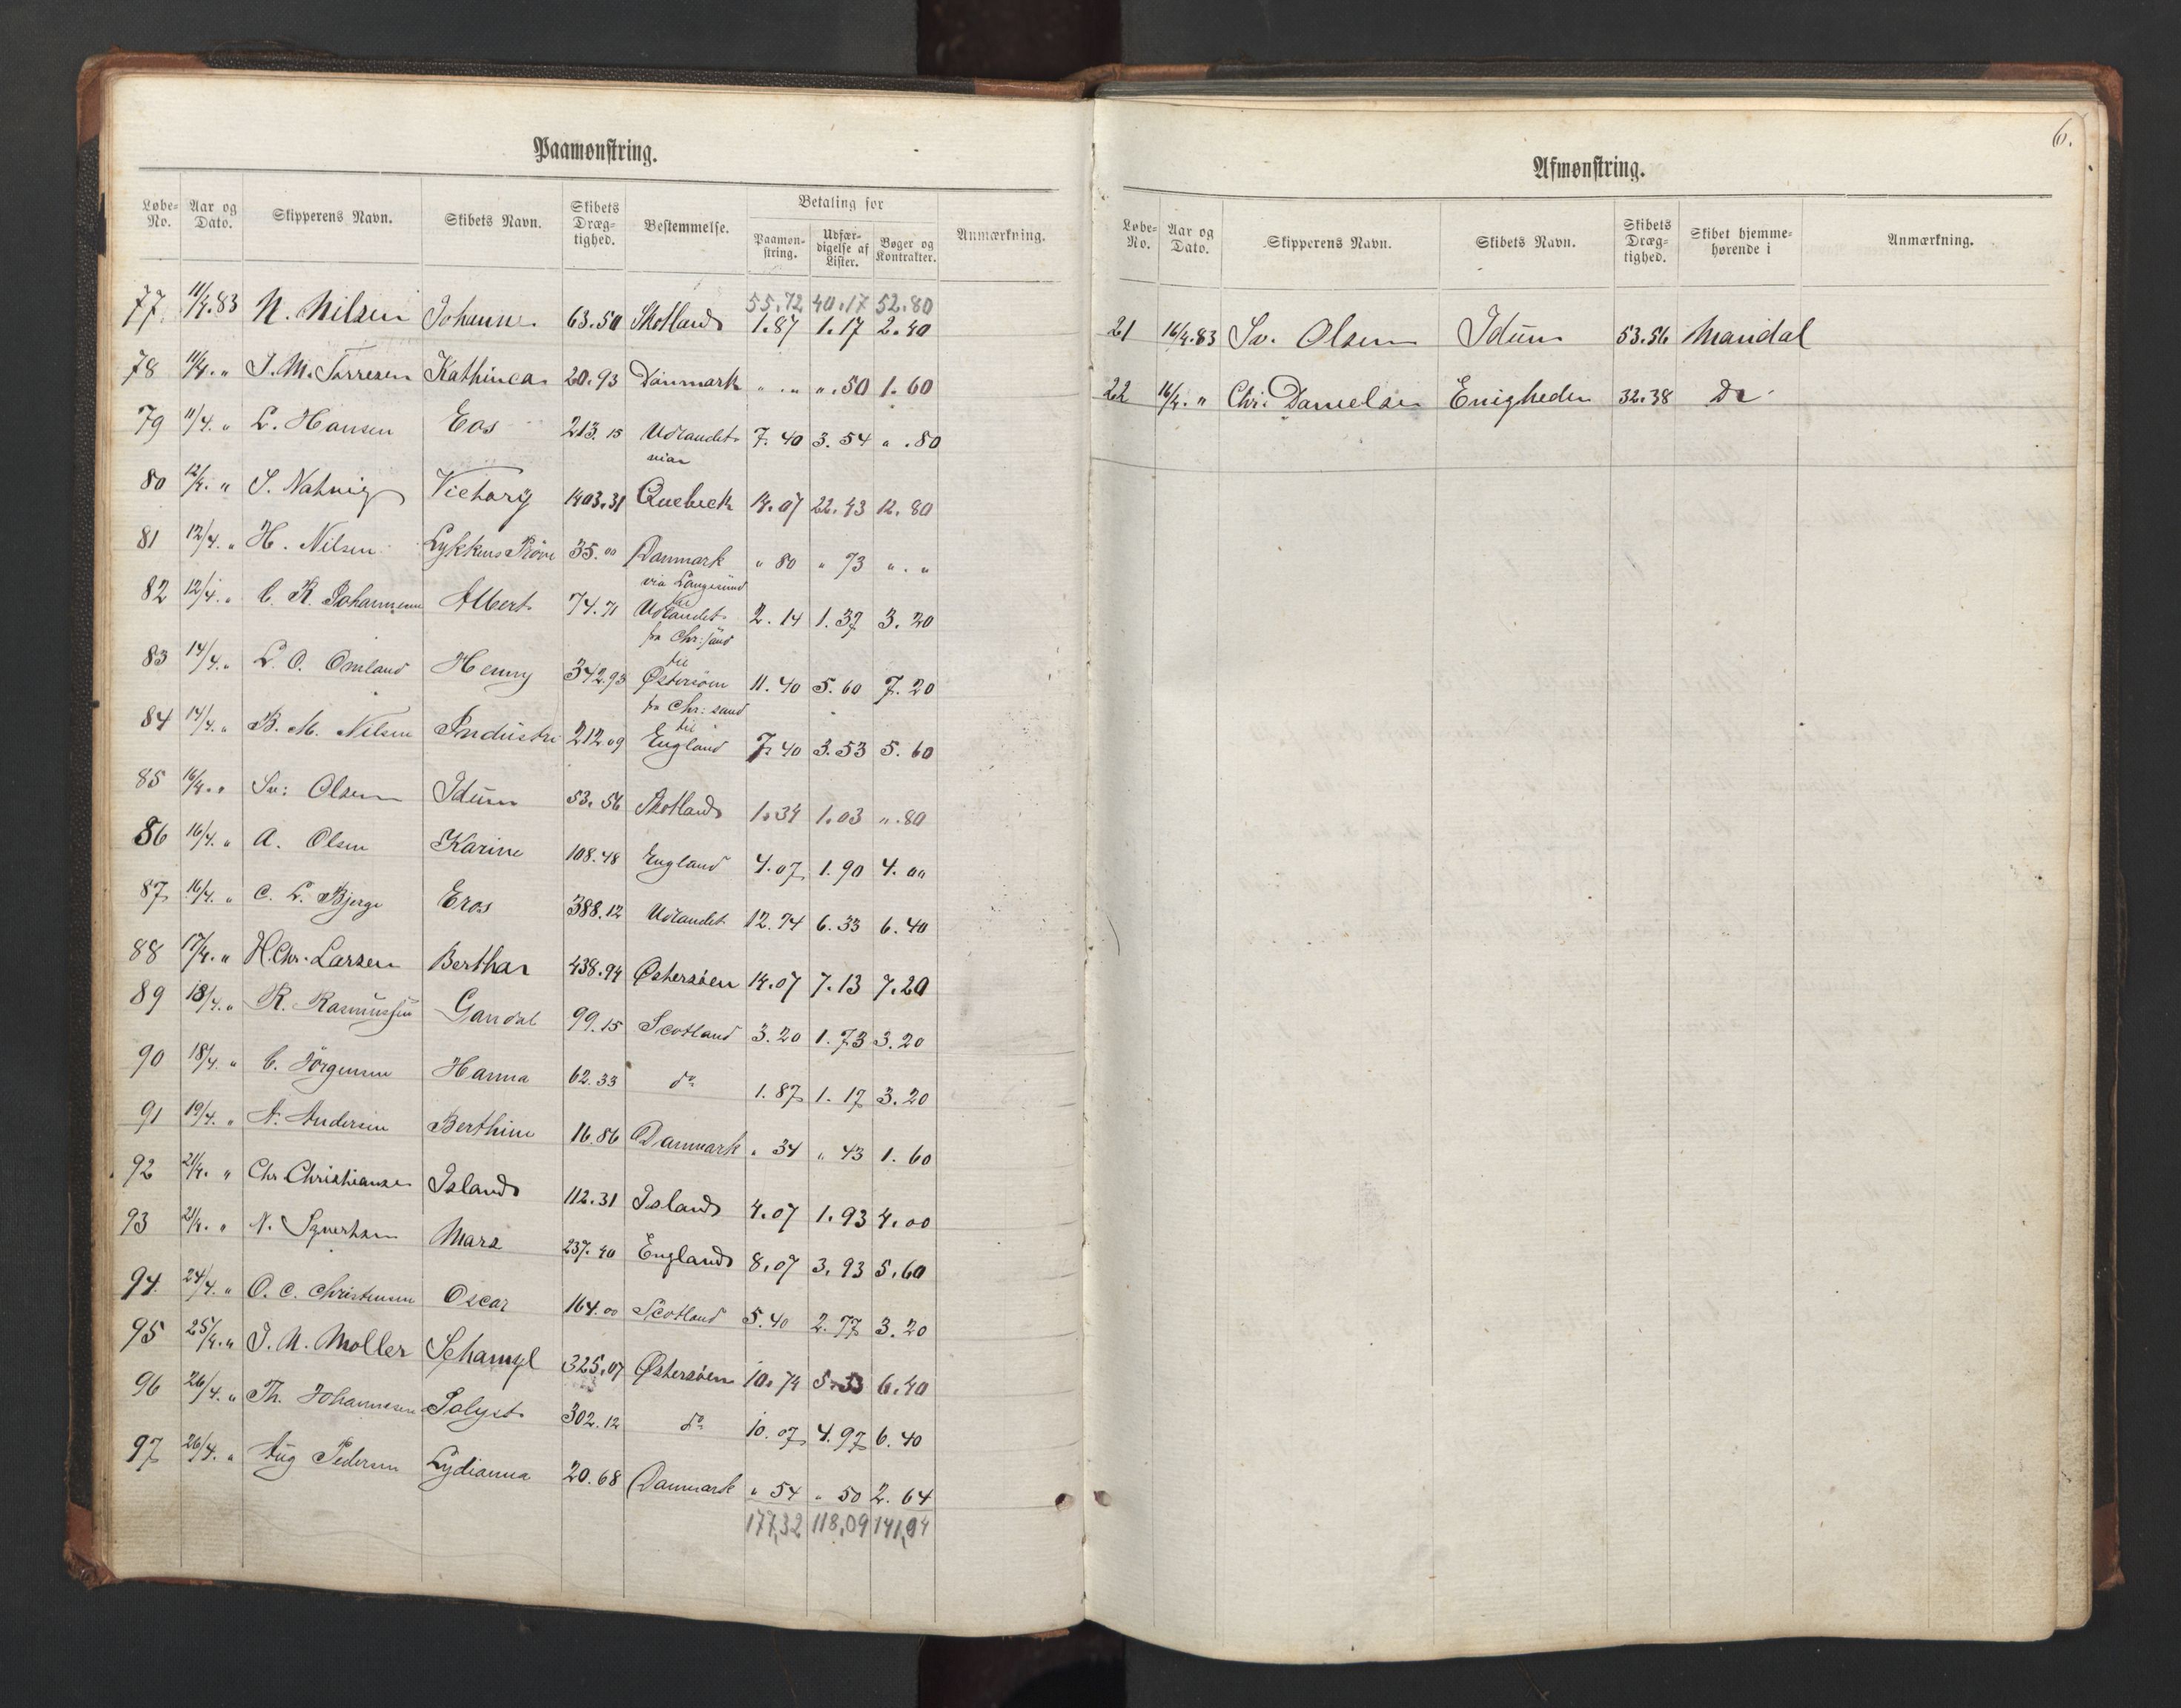 Paamønstring.
Løbe-No. Aar og Dato. Skipperens Navn. Skibets Navn. Skibets Dræg-tighed. Bestemmelse. Betaling for Paamøn-string. Udfær-digelse af Lister. Bøger og Kontrakter. Anmærkning.
55.72 40.17 52.80
77 11/4.83 N. Nilsen Johanne 63.50 Skotland 1.87 1.17 2.40
78 11/4. " J. M. Torresen Kathinca 20.93 Danmark " . " " .50 1.60
79 11/4. " L. Hansen Eos 213.15 Udlandet 7.40 3.54 " .80
80 12/4. " S. Natvig Victory 1403.31 Quebeck 14.07 22.43 12.80
81 12/4. " H. Nilsen Lykkens Prøve 35.00 Danmark " 80 " 73 " . "
82 12/4. " C. R. Johannesen Albert 74.71 via Langesund til Udlandet 2.14 1.37 3.20
83 14/4. " L. O. Omland Henny 342.93 fra Chr:sand til Østersöen 11.40 5.60 7.20
84 14/4. " B. M. Nilsen Industri 212.09 fra Chr:sand til England 7.40 3.53 5.60
85 16/4. " Sv: Olsen Idun 53.56 Skotland 1.34 1.03 " .80
86 16/4. " A. Olsen Karine 108.48 England 4.07 1.90 4.00
87 16/4. " C. L. Bjerge Eros 388.12 Udlandet 12.74 6.33 6.40
88 17/4. " H. Chr. Larsen Bertha 438.94 Østersøen 14.07 7.13 7.20
89 18/4. " R. Rasmussen Gandal 99.15 Scotland 3.20 1.73 3.20
90 18/4. " C. Jörgensen Hanna 62.33 do 1.87 1.17 3.20
91 19/4. " A. Andersen Berthine 16.86 Danmark " 34 " 43 1.60
92 21/4. " Chr Christiansen Island 112.31 Island 4.07 1.93 4.00
93 21/4. " N. Syvertsen Mars 237.40 England 8.07 3.93 5.60
94 24/4. " O. C. Christensen Oscar 164.00 Scotland 5.40 2.77 3.20
95 25/4. " J. M. Møller Schamyl 325.07 Østersøen 10.74 5.33 6.40
96 26/4. " Th. Johannesen Solyst 302.12 do 10.07 4.97 6.40
97 26/4. " Aug Pedersen Lydianna 20.68 Danmark " 54 " 50 2.64
177,32 118,09 141,04
6.
Afmønstring.
Løbe-No. Aar og Dato. Skipperens Navn. Skibets Navn. Skibets Dræg-tighed. Skibet hjemme-hørende i Anmærkning.
21 16/4.83 Sv. Olsen Idun 53.56 Mandal
22 16/4. " Chr: Danielsen Enigheden 32.38 Do